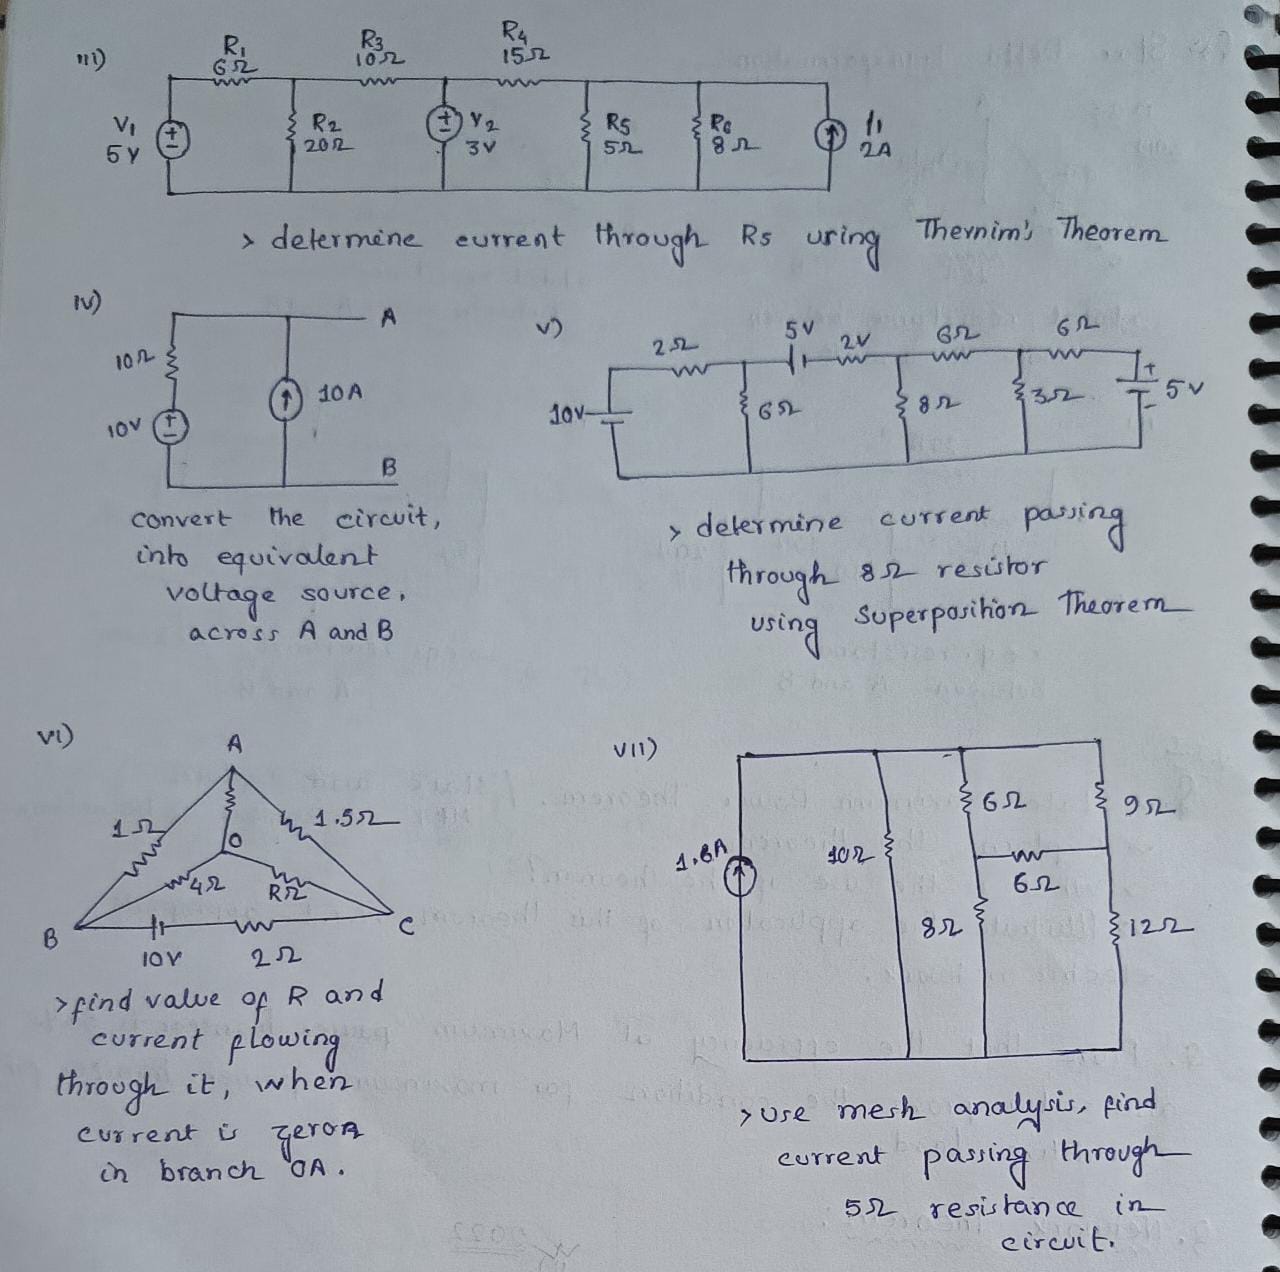 iii)
R1
6Ω
R3
10Ω
R4
15Ω
V1
5V
R2
20Ω
V2
3V
R5
5Ω
R6
8Ω
I1
2A
> determine current through R5 using Thevnim's Theorem
iv)
10Ω
10V
10A
A
B
convert the circuit,
into equivalent
voltage source,
across A and B
v)
2Ω
5V
2V
6Ω
6Ω
10V
6Ω
8Ω
3Ω
+
5V
-
> determine current passing
through 8Ω resistor
using Superposition Theorem
vi)
A
1Ω
1.5Ω
O
4Ω
RΩ
B
C
10V
2Ω
> find value of R and
current flowing
through it, when
current is zero
in branch OA.
vii)
1.8A
10Ω
6Ω
9Ω
6Ω
8Ω
12Ω
> use mesh analysis, find
current passing through
5Ω resistance in
circuit.